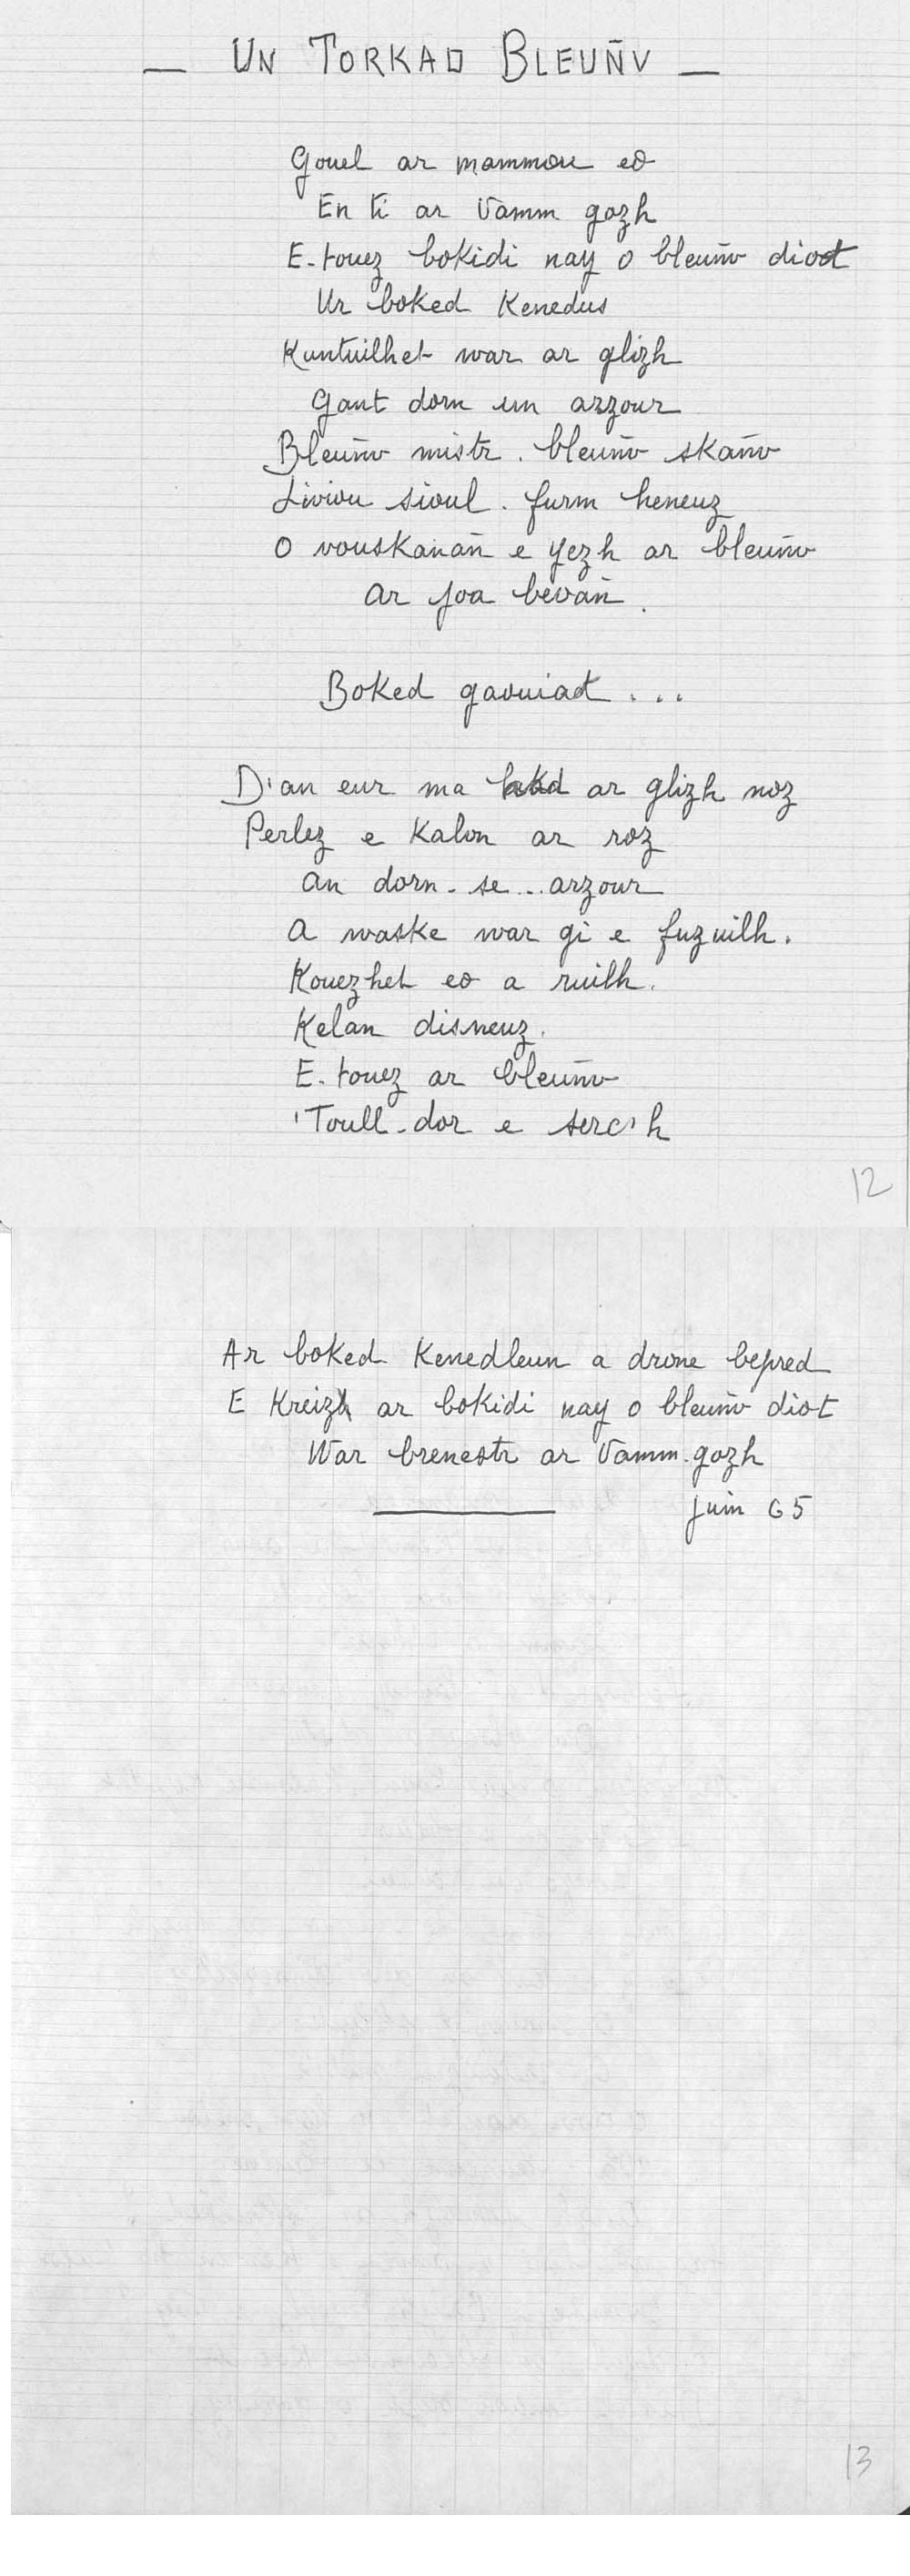 — UN TORKAD BLEUÑV —
Gouel ar mammou eo
En ti ar Vamm gozh
E-touez bokidi nay o bleuñv diot
Ur boked Kenedus
Kuntuilhet war ar glizh
Gant dorn un arzour
Bleuñv mistr. bleuñv skañv
Liviou sioul. furm heneuz
O vouskanañ e yezh ar bleuñv
ar joa bevañ.
Boked gaouiad ...
D'an eur ma ar glizh noz
Perlez e Kalon ar roz
an dorn-se... arzour
a waske war gi e fuzuilh.
Kouezhet eo a ruilh.
Kelan disneuz.
E-touez ar bleuñv
'Toull-dor e serc'h
12
Ar boked Kenedleun a drone bepred
E Kreiz ar bokidi nay o bleuñv diot
War brenestr ar Vamm-gozh
Juin 65
13